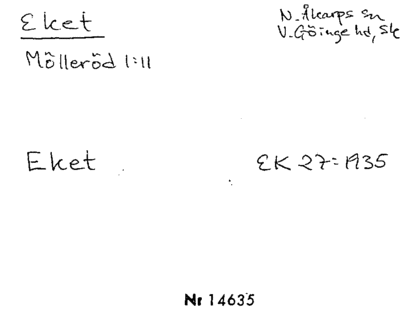 Eket
N. Åkarps sn
V. Göinge hd, Sk
Mölleröd 1:11
Eket
EK 27=1935
Nr 14635